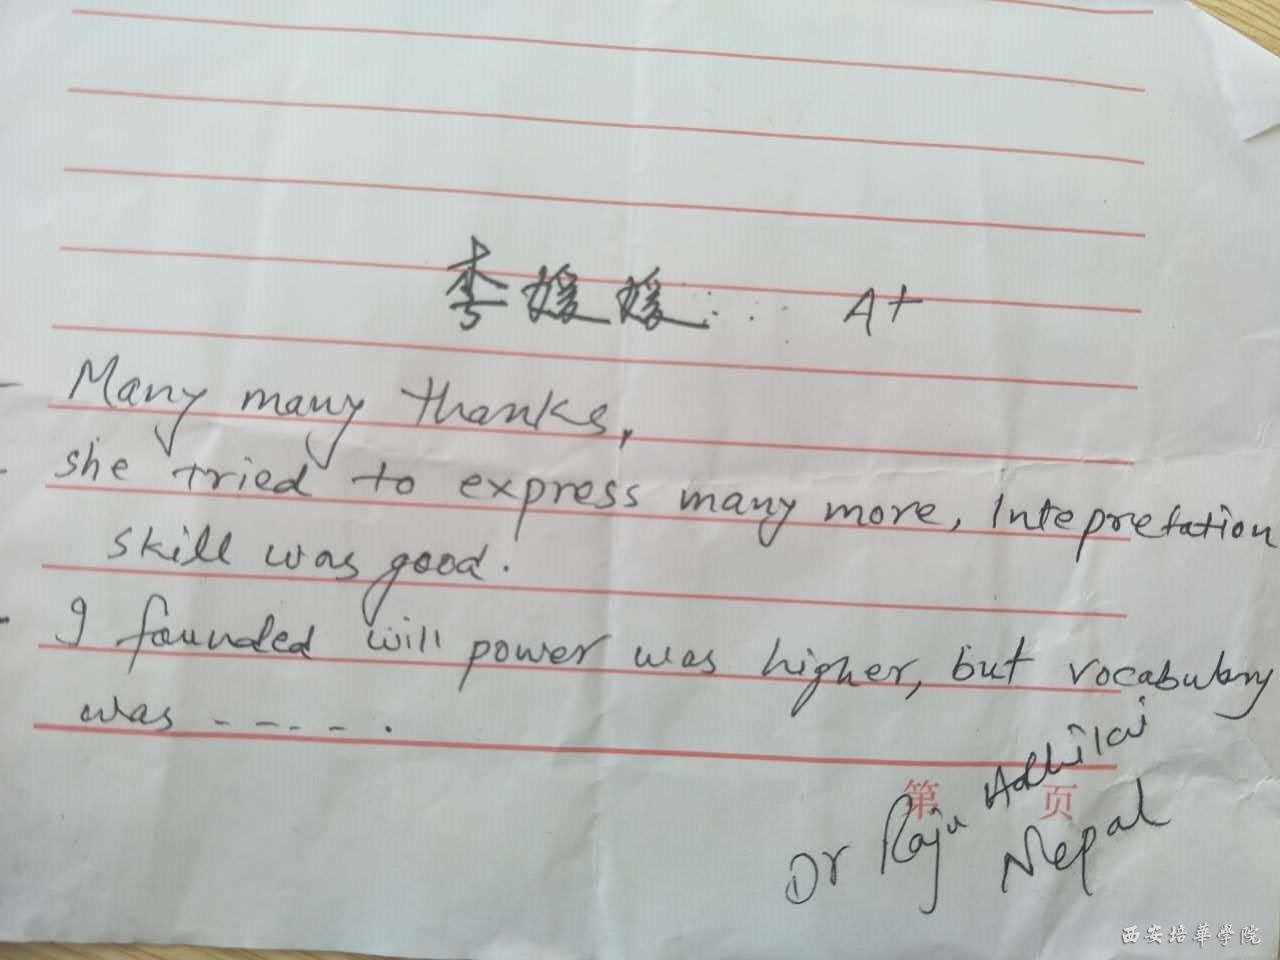 李媛媛 A+
- Many many thanks,
- she tried to express many more, Intepretation
skill was good.
- I founded will power was higher, but vocabulary
was - - - - .
第 页
Dr Raju Adhikari
Nepal
西安培華學院